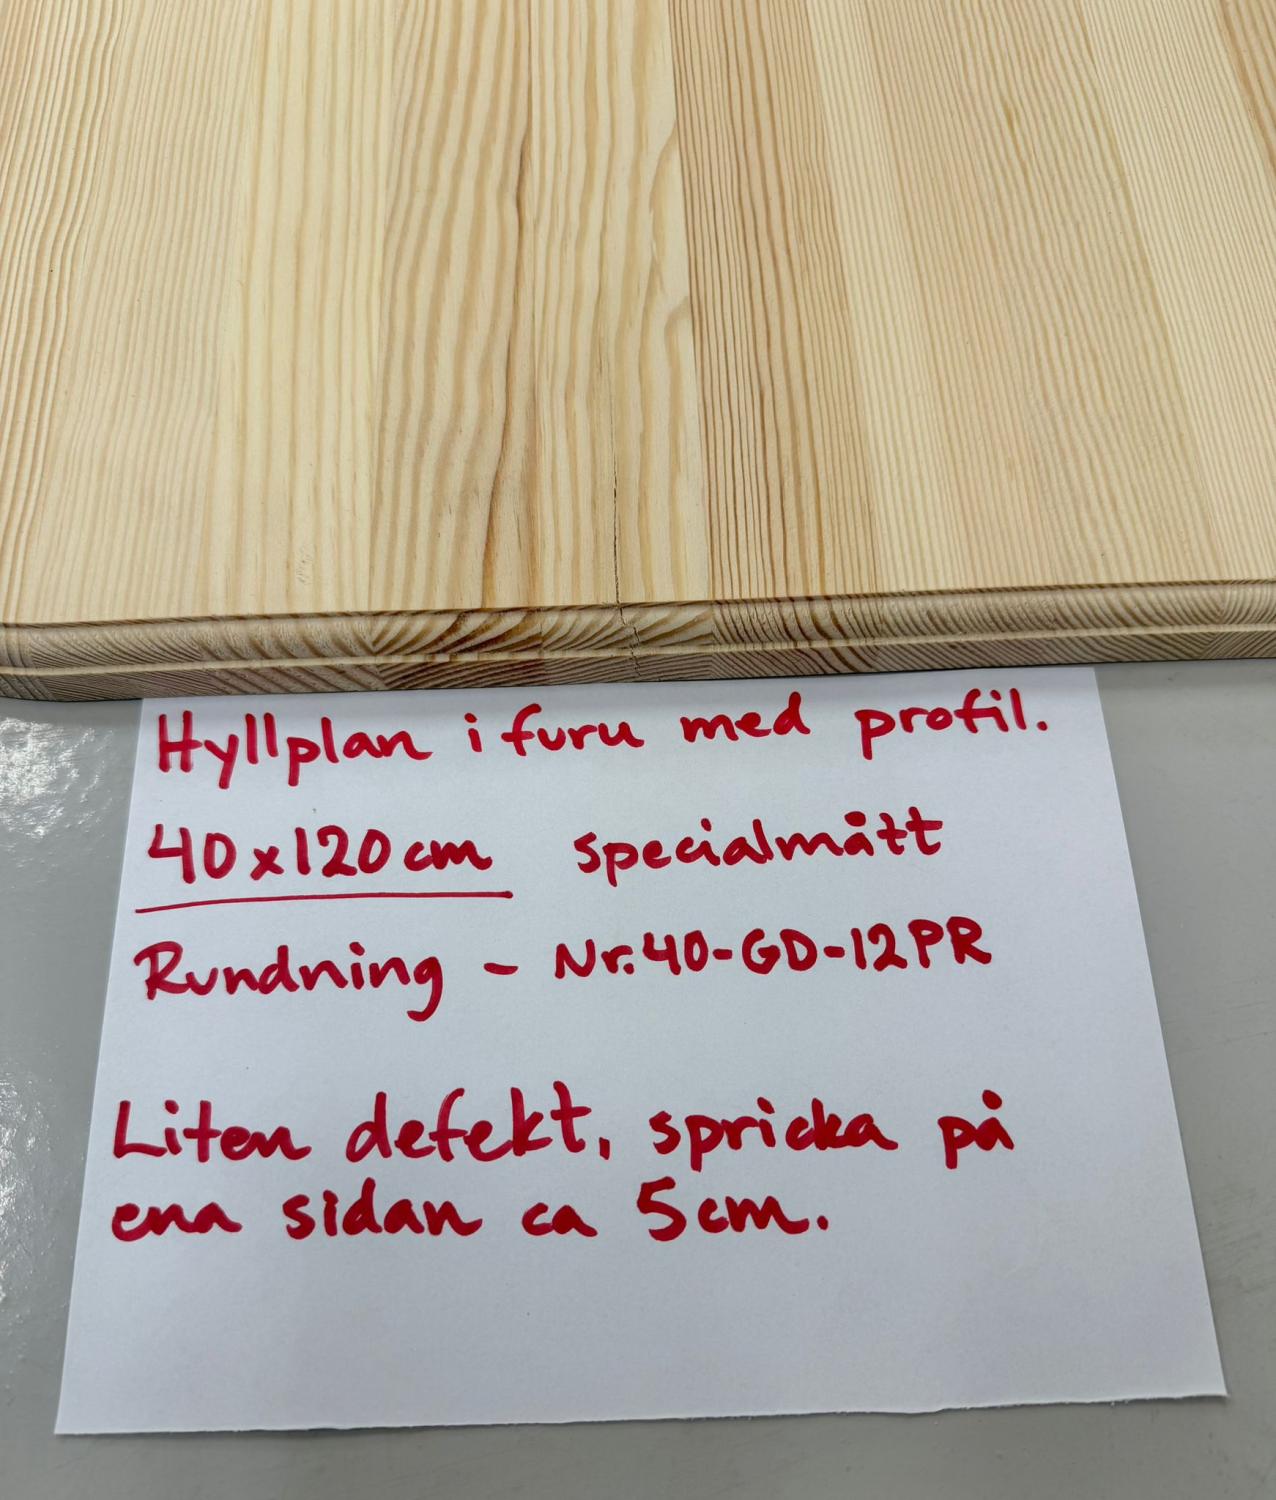 Hyllplan i furu med profil.
40x120cm specialmått
Rundning - Nr.40-GD-12PR
Liten defekt, spricka på
ena sidan ca 5cm.